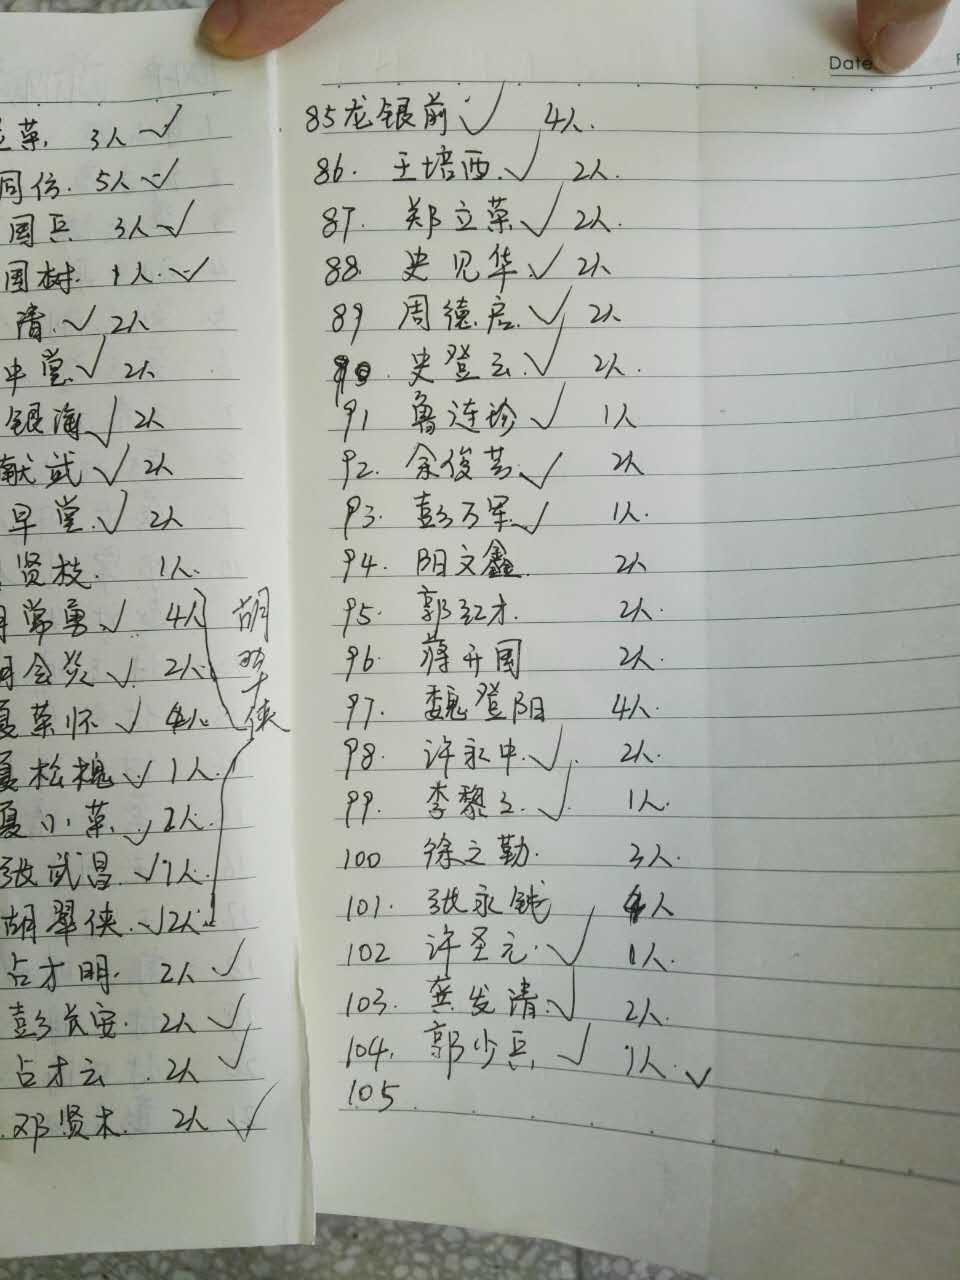 菜. 3人 ✓
同仿. 5人 ✓
国兵 3人 ✓
国树. 1人. ✓
清. ✓ 2人
中堂 ✓ 2人
银海 ✓ 2人
献武 ✓ 2人
早堂. ✓ 2人
贤枝. 1人.
常勇 ✓ 4人
会炎 ✓ 2人
夏荣怀 ✓ 4人
夏松槐 ✓ 1人
夏小菜. ✓ 2人.
张武昌. ✓ 1人.
胡翠侠. ✓ 2人.
占才明. 2人 ✓
彭长安. 2人 ✓
占才云. 2人 ✓
邓贤木. 2人 ✓
胡翠侠
Date
85 龙银前 ✓ 4人.
86. 王培西. ✓ 2人.
87. 郑立荣 ✓ 2人.
88. 史见华. ✓ 2人
89 周德启. ✓ 2人
90. 史登云. ✓ 2人.
91 鲁连珍 ✓ 1人
92. 余俊芸. ✓ 2人
93. 彭万军. ✓ 1人.
94. 阳文鑫. 2人
95. 郭红才. 2人.
96. 蒋开国 2人.
97. 魏登阳 4人.
98. 许永中. ✓ 2人.
99. 李黎立. ✓ 1人.
100 徐之勤. 3人.
101. 张永钱 4人
102 许圣元. ✓ 1人.
103. 龚发清. ✓ 2人.
104. 郭少兵. ✓ 1人. ✓
105